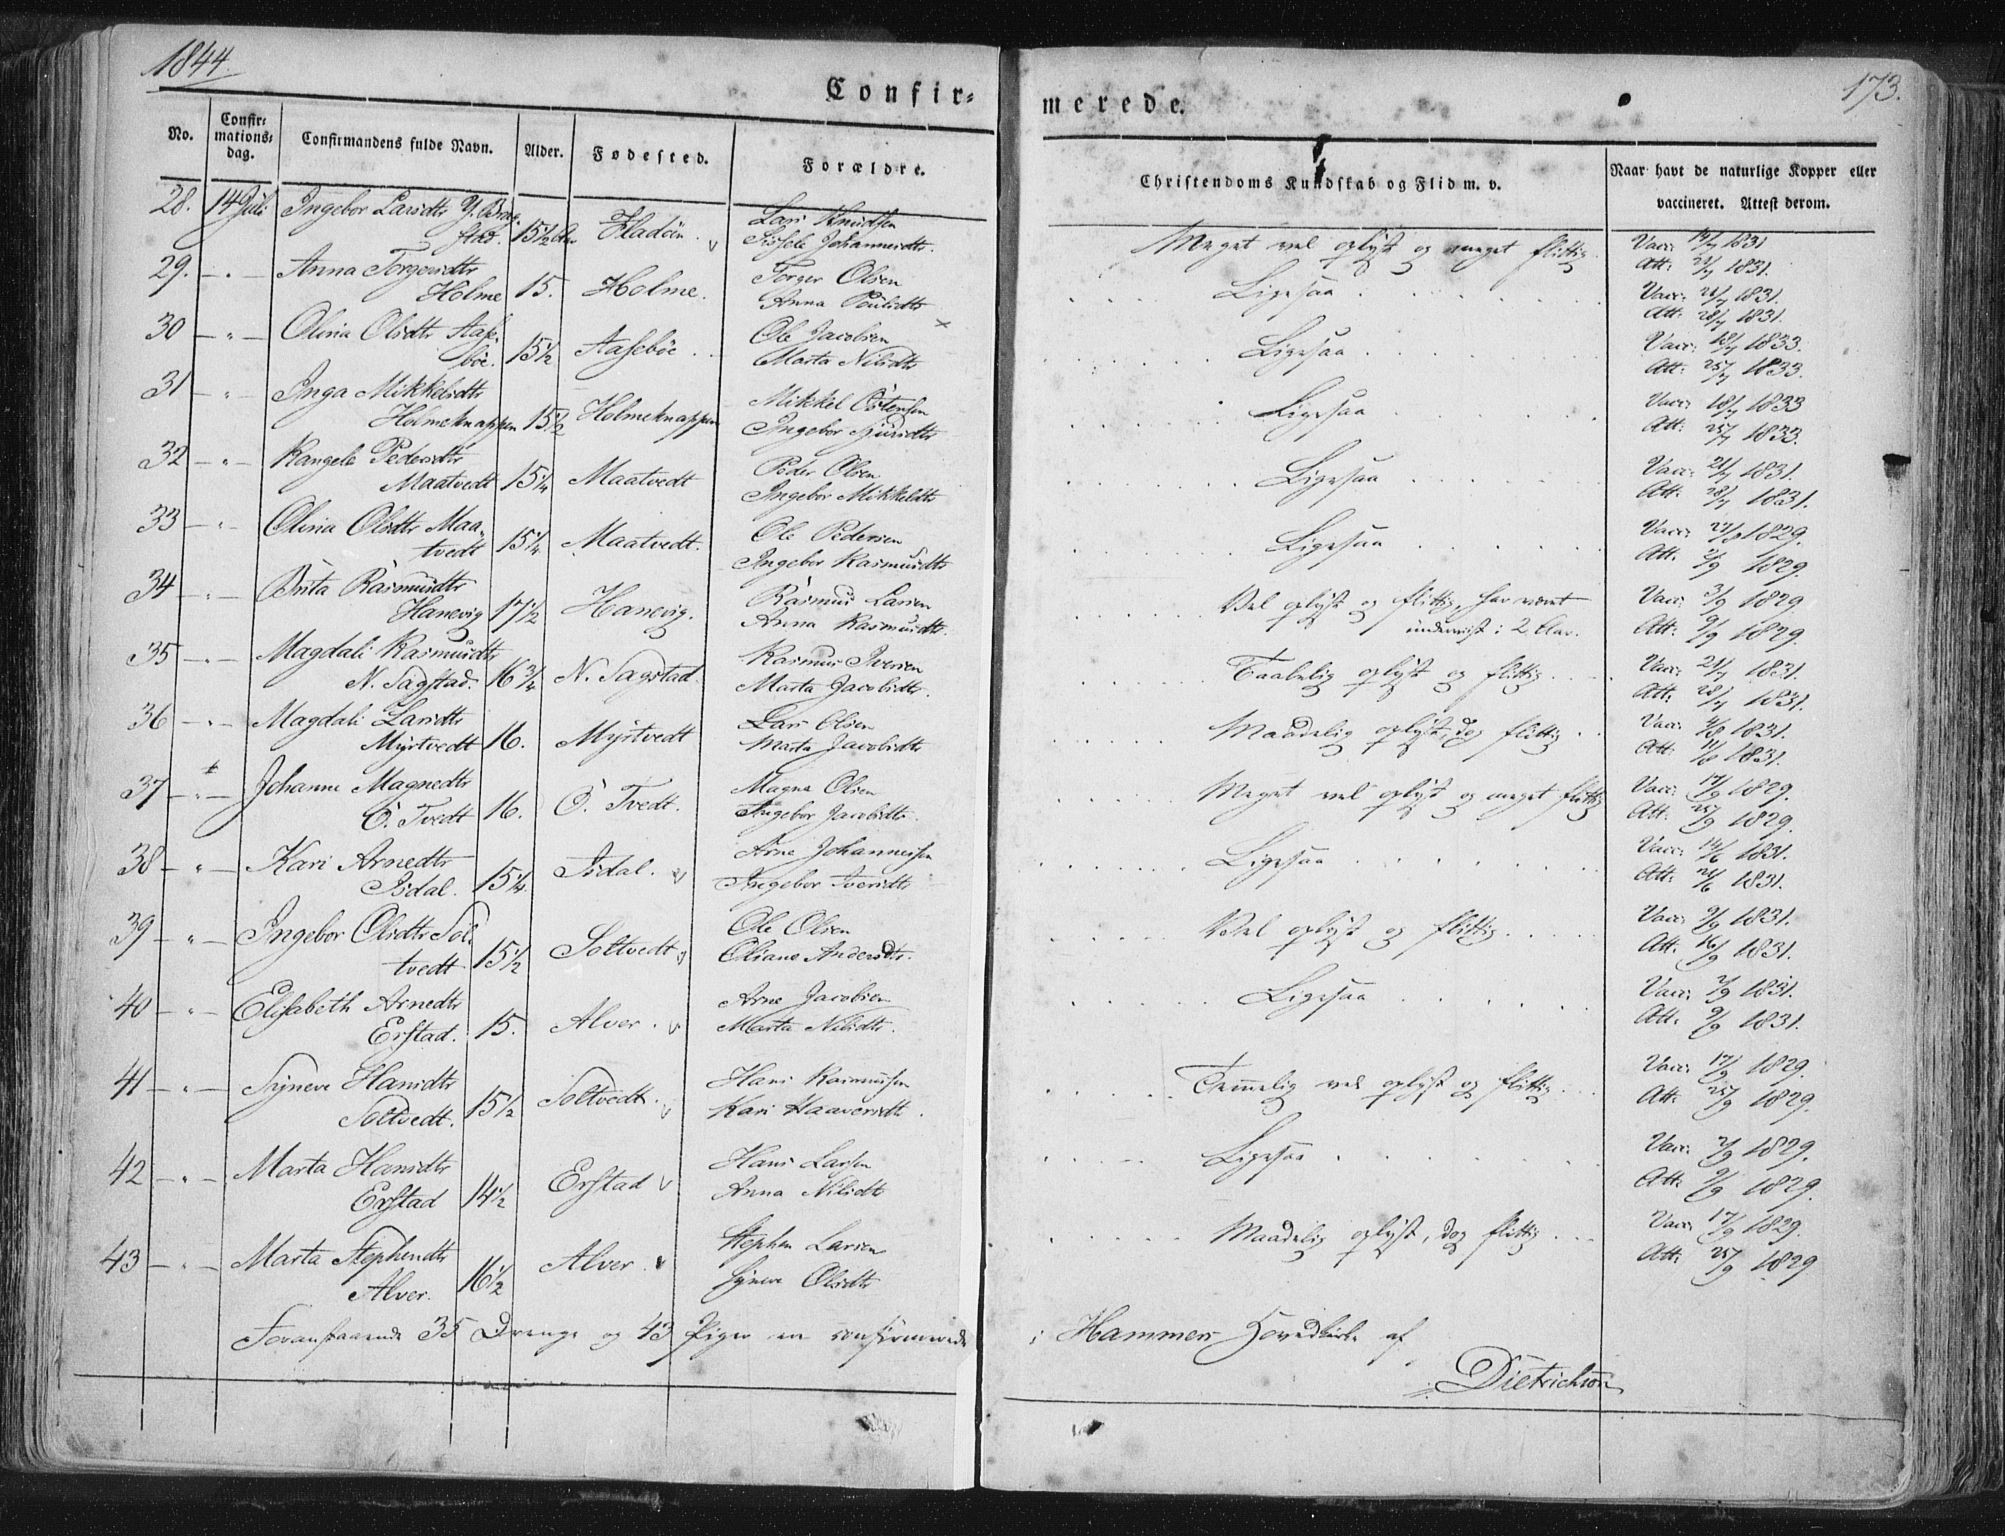 1844.
173.
Confir-
merede.
No.
Confir-
mations-
dag.
Confirmandens fulde Navn.
Alder.
Fødested.
Forældre.
Christendoms Kundskab og Flid m. v.
Naar havt de naturlige Kopper eller
vaccineret. Attest derom.
28. 14 Juli Ingebor Larsdtr Y. Brag- Lars Knudsen
stad. 15½ Aar Fladöen. v Sissele Johannesdtr. Meget vel oplyst og meget flittig. Vacc: 14/7 1831
Att: 21/7 1831.
29. — " — Anna Torgersdtr Torger Olsen Ligesaa Vacc: 21/7 1831.
Holme 15. Holme. Anna Poulsdtr Att: 28/7 1831.
30 — " — Olina Olsdtr Aase- Ole Jacobsen Ligesaa Vacc: 18/7 1833.
böe. 15½ Aasebøe Marta Nilsdtr Att: 25/7 1833.
31 — " — Inga Mikkelsdtr Mikkel Östensen Ligesaa Vacc: 18/7 1833
Holmeknappen 15½ Holmeknappen Ingebor Sjursdtr Att: 25/7 1833.
32 — " — Rangela Pedersdtr Peder Olsen Ligesaa Vacc: 21/7 1831.
Maatvedt 15¼ Maatvedt Ingebor Mikkelsdtr Att: 28/7 1831.
33 — " — Olina Olsdtr Maa- Ole Pedersen Ligesaa Vacc: 27/8 1829.
tvedt 15¼ Maatvedt. Ingebor Rasmusdtr Att. 3/9 1829.
34 — " — Brita Rasmusdtr Rasmus Larsen Vel oplyst og flittig, har været Vacc: 3/9 1829.
Hanevig 17½ Hanevig. Anna Rasmusdtr. underviist i 2 Aar. Att: 9/9 1829.
35 — " — Magdali Rasmusdtr Rasmus Iversen Taalelig oplyst og flittig Vacc: 21/7 1831.
N. Sagstad. 16¾ N. Sagstad Marta Jacobsdtr. Att: 28/7 1831.
36 — " — Magdali Larsdtr Lars Olsen Maadelig oplyst, dog flittig Vacc: 4/8 1831.
Myrtvedt 16. Myrtvedt Marta Jacobsdtr Att: 11/8 1831.
37 — " — Johanne Magnedtr Magne Olsen Meget vel oplyst og meget flittig Vacc: 17/9 1829.
Ö. Tvedt 16. Ö. Tvedt. Ingebor Jacobsdtr. Att: 25/9 1829.
38 — " — Kari Arnedtr Arne Johannessen Ligesaa Vacc: 14/6 1831.
Isdal. 15¼ Isdal. v Ingebor Iversdtr Att: 21/6 1831.
39 — " — Ingebor Olsdtr Sol- Ole Olsen Vel oplyst og flittig Vacc: 9/9 1831.
tvedt 15½ Soltvedt v Oliane Andersdtr. Att: 16/9 1831.
40 — " — Elisabeth Arnedtr Arne Jacobsen Ligesaa Vacc: 2/9 1831.
Erstad. 15. Alver. v Marta Nilsdtr. Att. 9/9 1831.
41 — " — Synneve Hansdtr Hans Rasmussen Temmelig vel oplyst og flittig Vacc: 17/9 1829.
Soltvedt. 15½ Soltvedt. v Kari Haaversdtr. Att: 25/9 1829.
42 — " — Marta Hansdtr Hans Larsen Ligesaa Vacc: 2/9 1829.
Erstad 14½ Erstad v Anna Nilsdtr Att: 9/9 1829.
43 — " — Marta Stephensdtr Stephen Larsen Maadelig oplyst, dog flittig Vacc: 17/9 1829.
Alver. 16½ Alver. v Synneve Olsdtr Att: 25/9 1829
Foranstaaende 35 Drenge og 43 Piger ere confirmerede i Hammers Hovedkirke af
Dietrichson